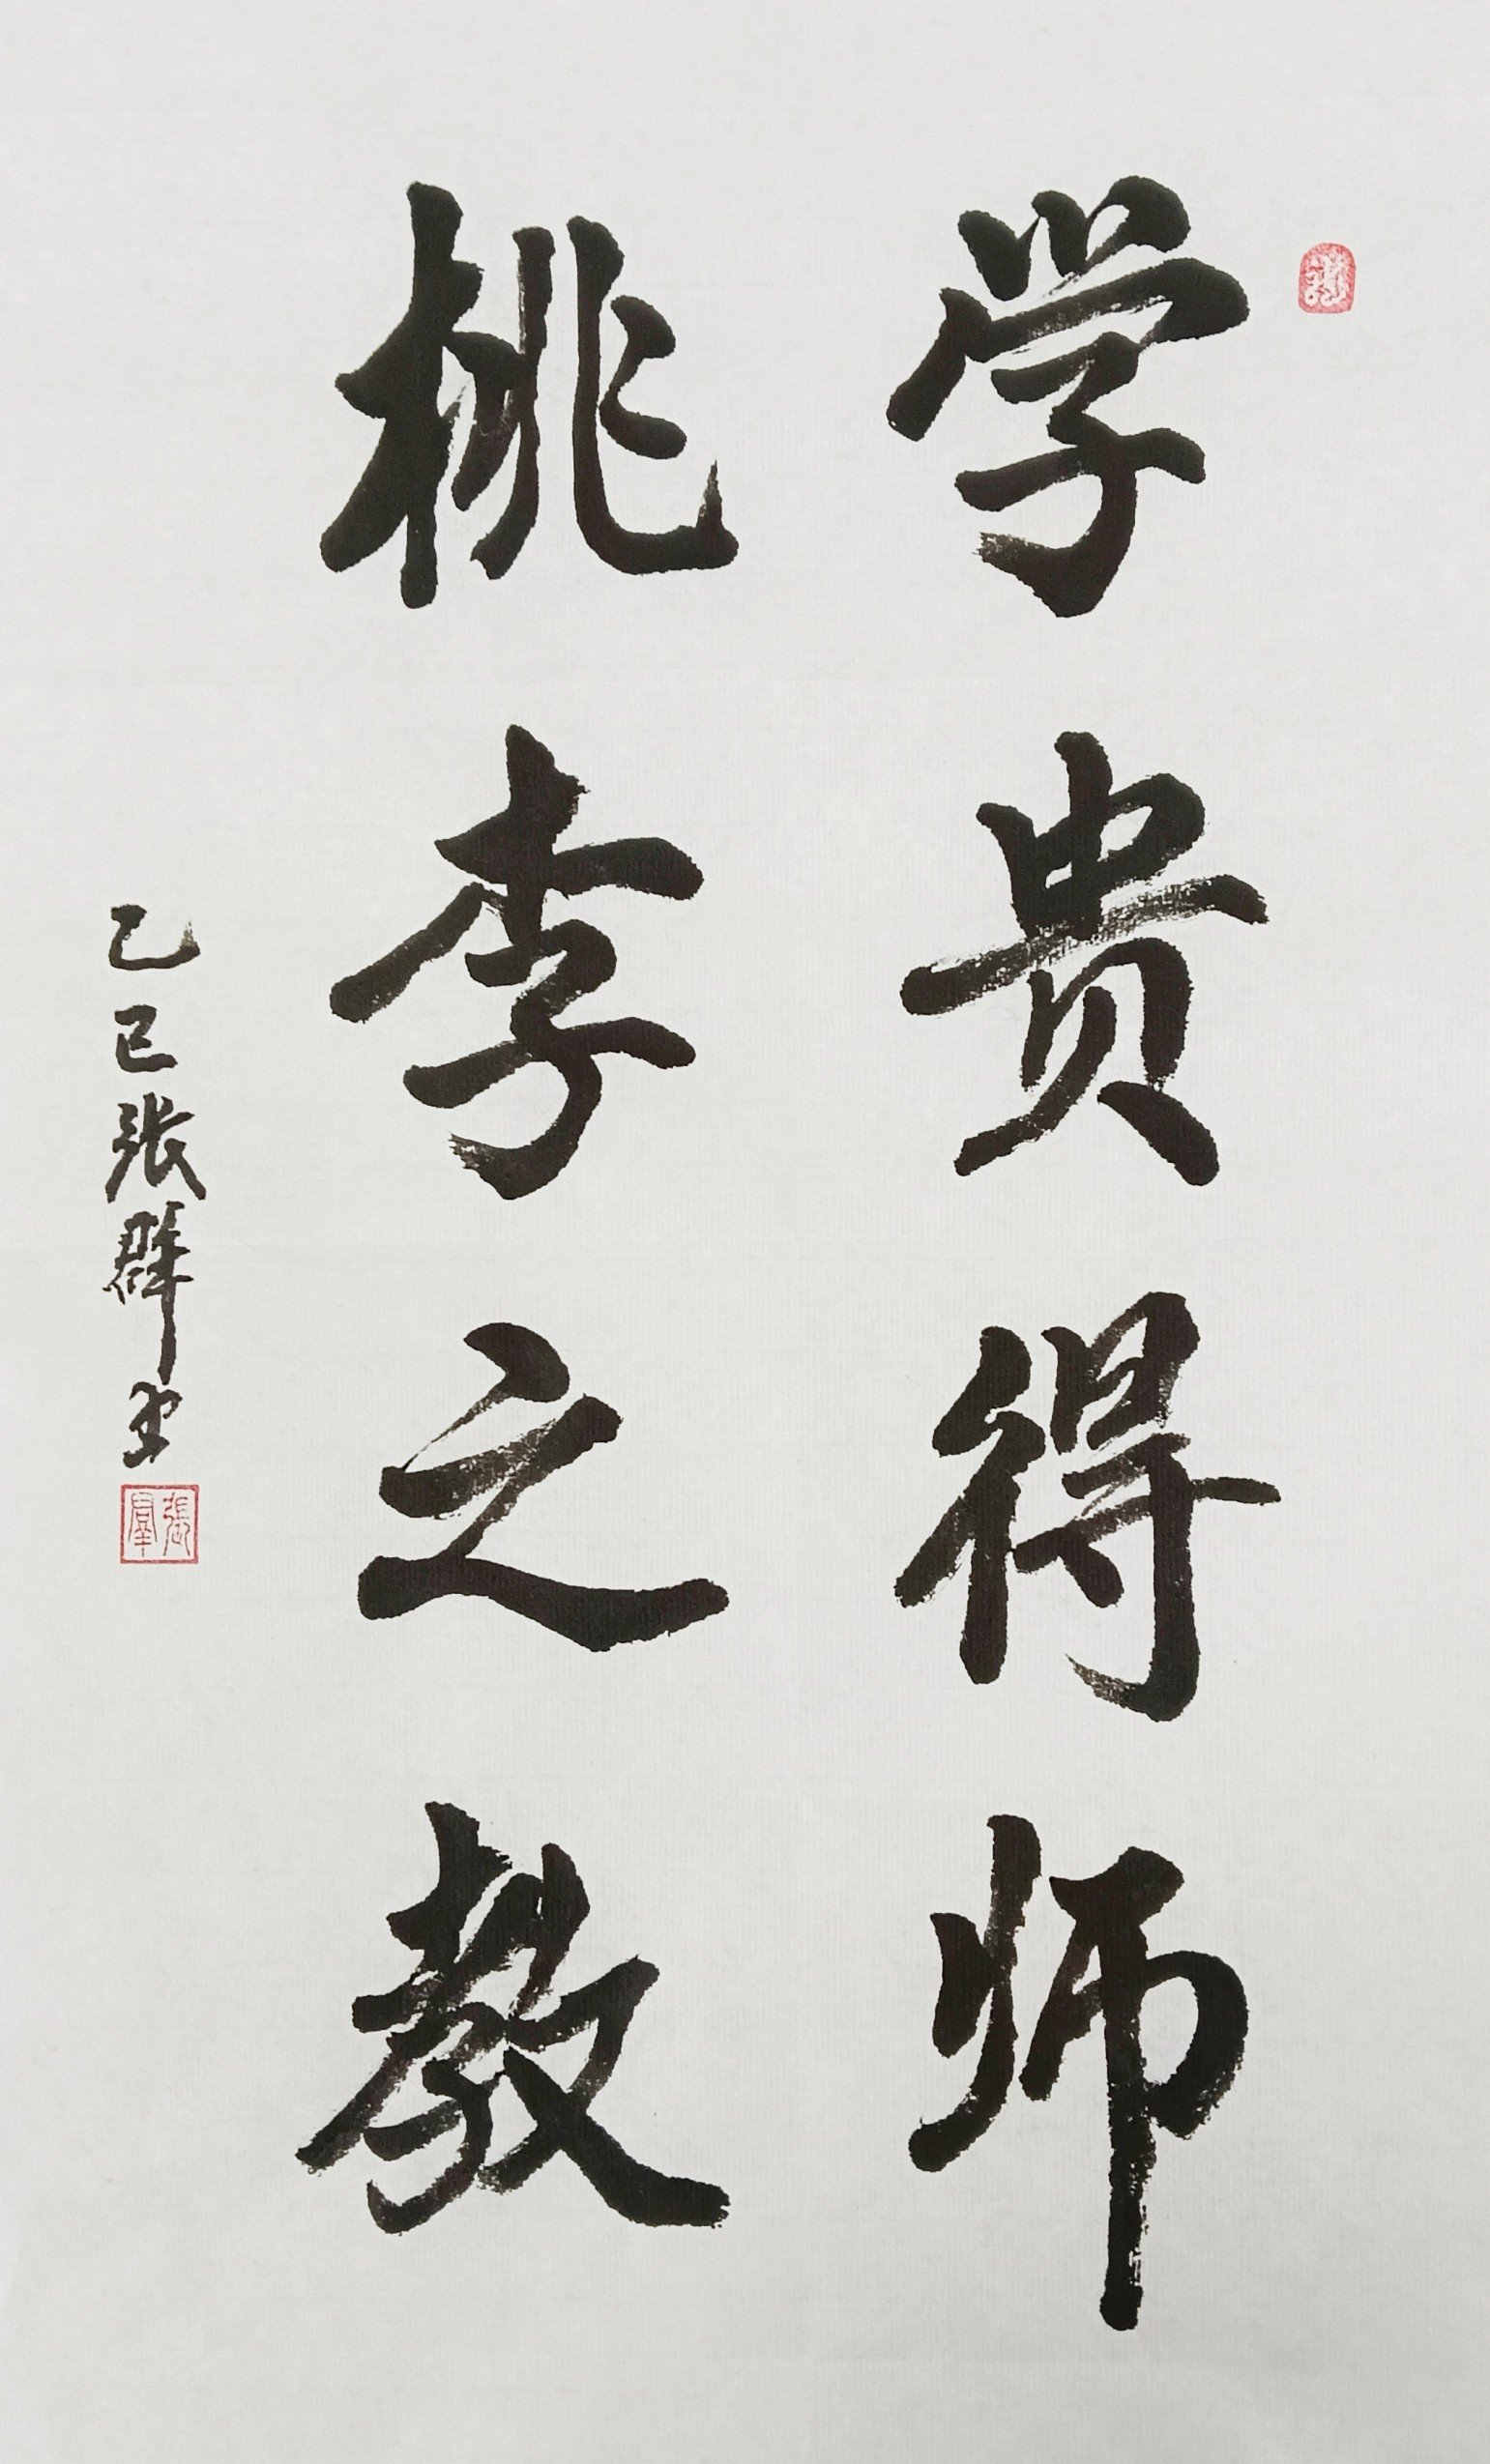 学贵得师
桃李之教
乙巳张群书
張羣